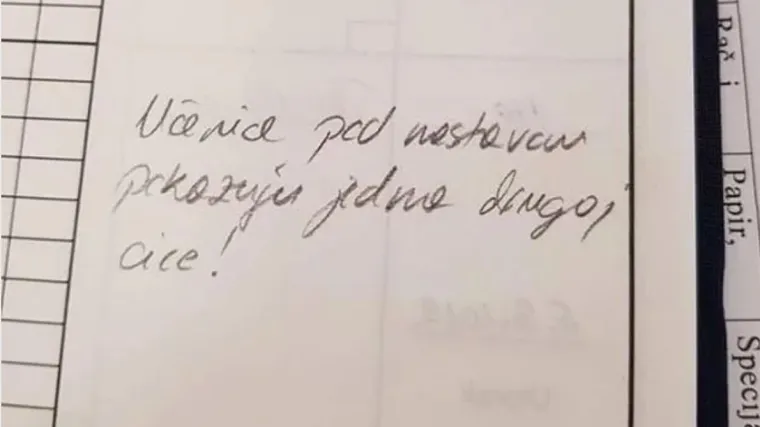 Učenice pod nastavom
pokazuju jedna drugoj
cice!
Rač i
Papir,
Specija